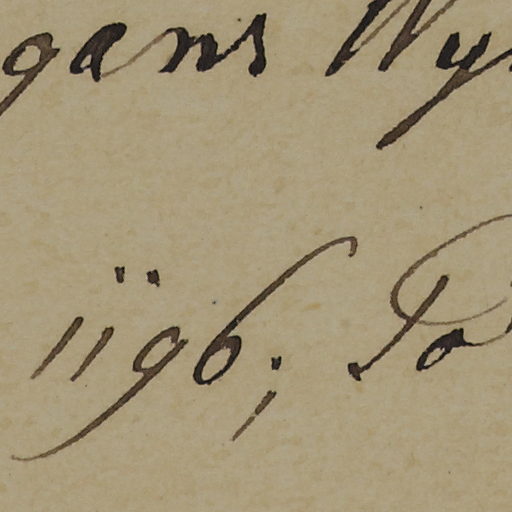 gans Wy
1196; Po